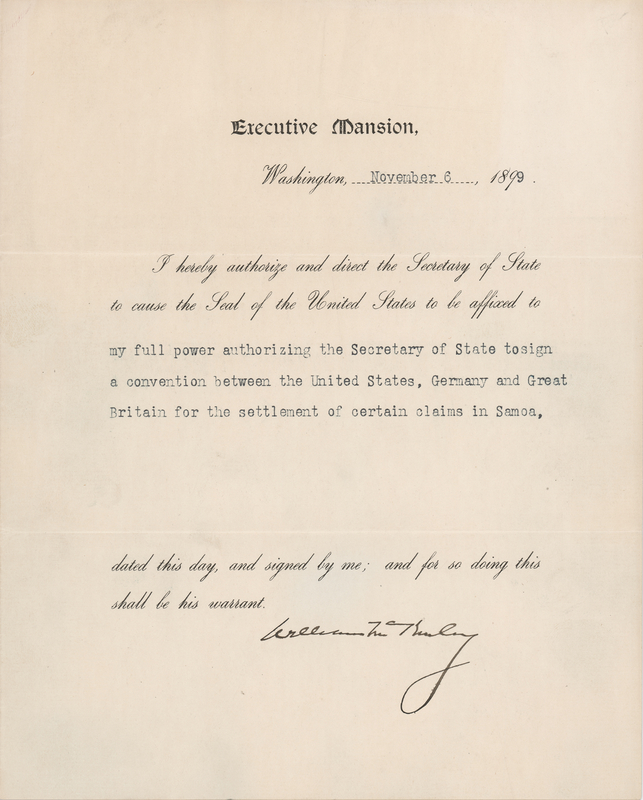 Executive Mansion,
Washington, November 6, 1899.
I hereby authorize and direct the Secretary of State
to cause the Seal of the United States to be affixed to
my full power authorizing the Secretary of State tosign
a convention between the United States, Germany and Great
Britain for the settlement of certain claims in Samoa,
dated this day, and signed by me; and for so doing this
shall be his warrant.
William McKinley